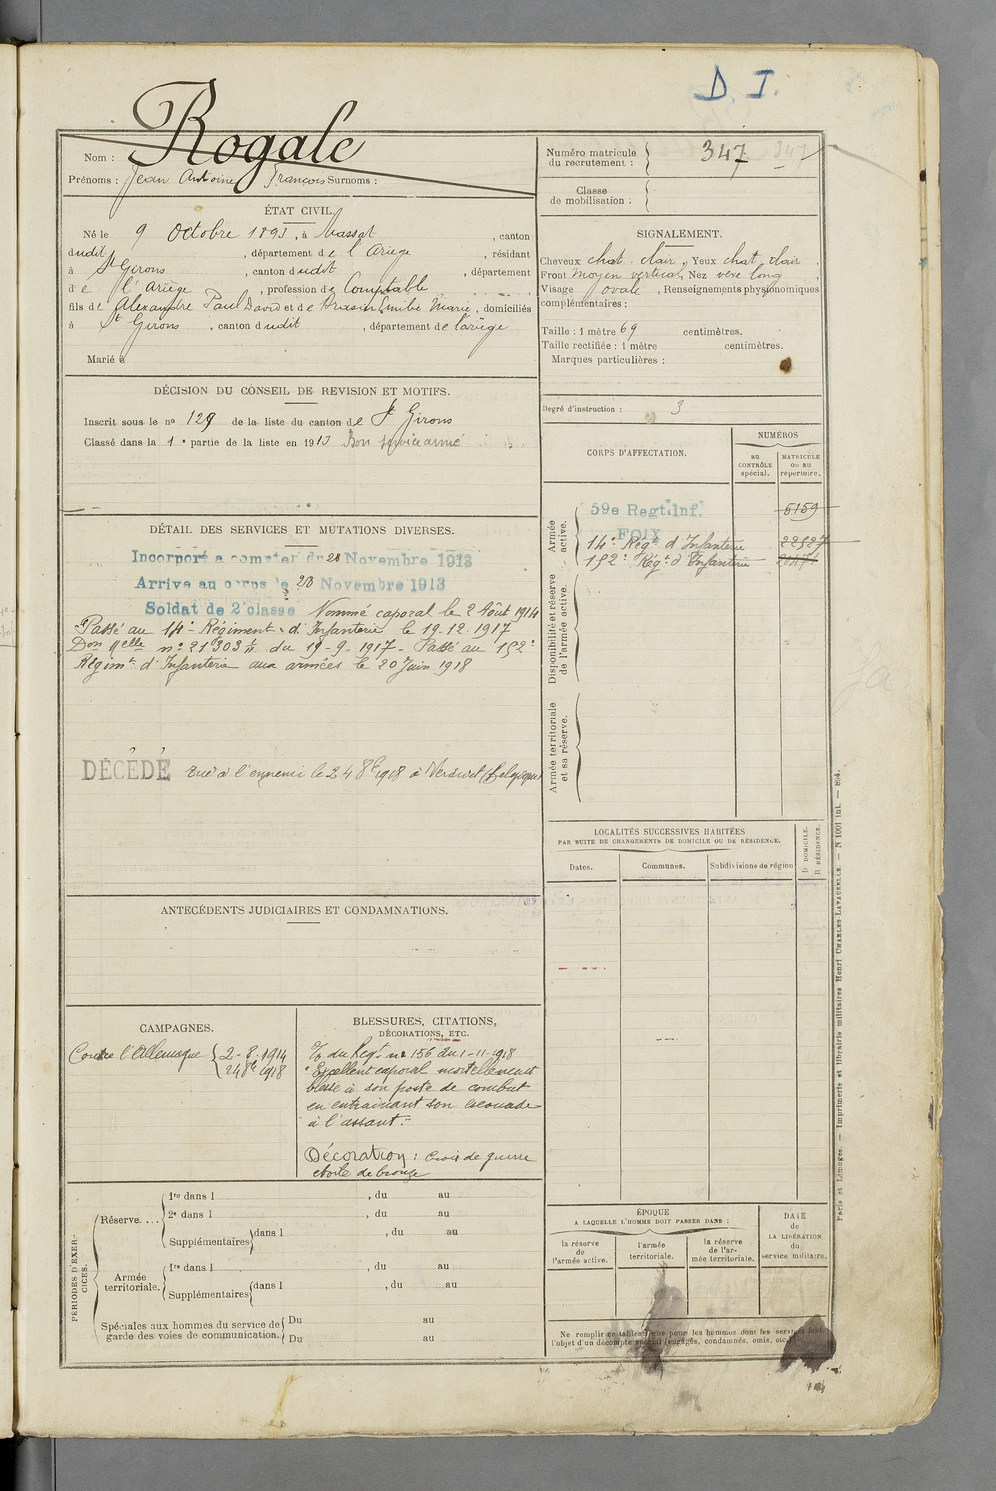 D. I.
Nom : Rogale
Prénoms : Jean Antoine François Surnoms :
Numéro matricule du recrutement : 347
Classe de mobilisation :
ÉTAT CIVIL.
Né le 9 Octobre 1893, à Massat, canton
dudit, département de l'Ariège, résidant
à St Girons, canton dudit, département
de l'Ariège, profession de Comptable
fils de Alexandre Paul David et de Emilie Marie, domiciliés
à St Girons, canton dudit, département de l'ariège
Marié à
SIGNALEMENT.
Cheveux chat. clair, Yeux chat. clair
Front moyen vertical, Nez vexe long
Visage ovale, Renseignements physionomiques
complémentaires :
Taille : 1 mètre 69 centimètres.
Taille rectifiée : 1 mètre centimètres.
Marques particulières :
Degré d'instruction : 3
DÉCISION DU CONSEIL DE REVISION ET MOTIFS.
Inscrit sous le no 129 de la liste du canton de St Girons
Classé dans la 1e partie de la liste en 1913 Bon service armé
DÉTAIL DES SERVICES ET MUTATIONS DIVERSES.
Incorporé a compter du 28 Novembre 1913
Arrivé au corps le 28 Novembre 1913
Soldat de 2e classe Nommé caporal le 2 Août 1914
Passé au 14e Régiment d'Infanterie le 19-12-1917
Don nelle no 21303 du 19-9-1917 - Passé au 152e
Régimt d'Infanterie aux armées le 20 Juin 1918
DÉCÉDÉ tué à l'ennemi le 24 8bre 1918 à (Belgique)
CORPS D'AFFECTATION.
NUMÉROS
au CONTRÔLE spécial.
MATRICULE ou au répertoire.
Armée active.
59e Regt. Inf. 5159
FOIX
14e Régt d'Infanterie 22527
152e Régt d'Infanterie
Disponibilité et réserve de l'armée active.
Armée territoriale et sa réserve.
LOCALITÉS SUCCESSIVES HABITÉES
PAR SUITE DE CHANGEMENTS DE DOMICILE OU DE RÉSIDENCE.
Dates. Communes. Subdivisions de région
D. DOMICILE. R. RÉSIDENCE.
ANTÉCÉDENTS JUDICIAIRES ET CONDAMNATIONS.
CAMPAGNES.
Contre l'Allemagne 2-8-1914
24 8bre 1918
BLESSURES, CITATIONS,
DÉCORATIONS, ETC.
O/ du Regt. no 156 du 1-11-1918
"Excellent caporal mortellement
blessé à son poste de combat
en entrainant son escouade
à l'assaut."
Décoration : Croix de guerre
etoile de bronze
PÉRIODES D'EXERCICES.
Réserve....
1re dans l , du au
2e dans l , du au
Supplémentaires dans l , du au
Armée territoriale.
1re dans l , du au
Supplémentaires dans l , du au
Spéciales aux hommes du service de garde des voies de communication.
Du au
Du au
ÉPOQUE
A LAQUELLE L'HOMME DOIT PASSER DANS :
la réserve de l'armée active.
l'armée territoriale.
la réserve de l'armée territoriale.
DATE de LA LIBÉRATION du service militaire.
Ne remplir ce tableau que pour les hommes dont les services font
l'objet d'un décompte spécial (engagés, condamnés, omis, etc.)
Paris et Limoges. — Imprimerie et librairie militaires Henri CHARLES-LAVAUZELLE. — N 1001 int. — 894.